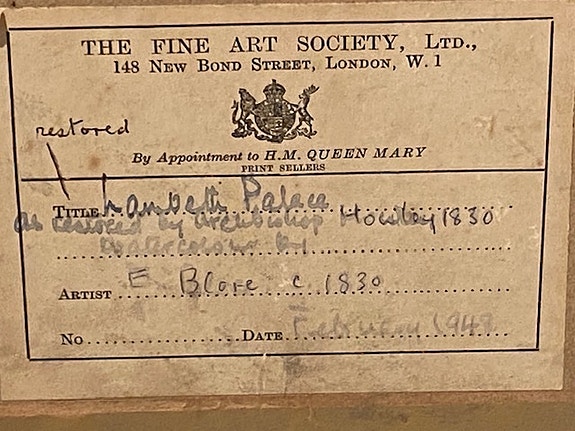 THE FINE ART SOCIETY, LTD.,
148 NEW BOND STREET, LONDON, W. 1
restored
By Appointment to H.M. QUEEN MARY
PRINT SELLERS
TITLE Lambeth Palace
as restored by Archbishop Howley 1830
Watercolour by
ARTIST E Blore c 1830
NO DATE February 1949